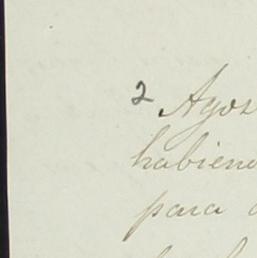 2 Agos
habiend
para